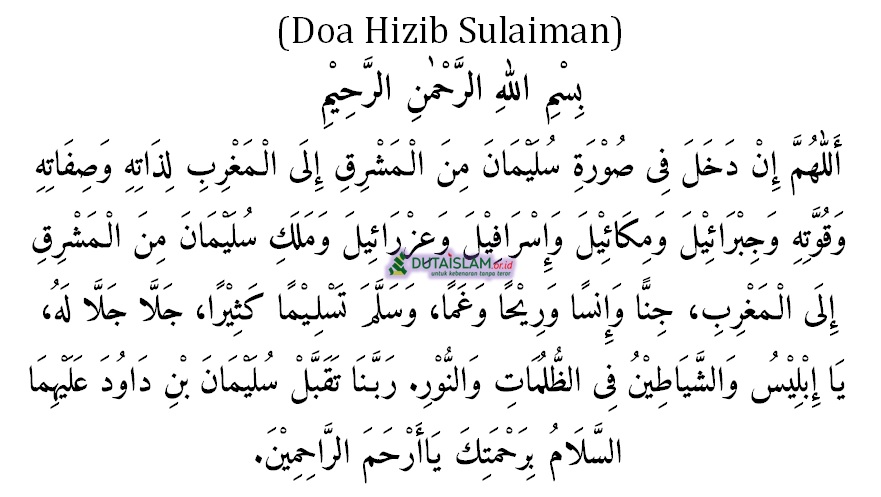 (Doa Hizib Sulaiman)
بِسْمِ اللهِ الرَّحْمٰنِ الرَّحِيْمِ
أَللّٰهُمَّ إِنْ دَخَلَ فِى صُوْرَةِ سُلَيْمَانَ مِنَ الْمَشْرِقِ إِلَى الْمَغْرِبِ لِذَاتِهِ وَصِفَاتِهِ
وَقُوَّتِهِ وَجِبْرَائِيْلَ وَمِكَائِيْلَ وَإِسْرَافِيْلَ وَعِزْرَائِيلَ وَمَلَكِ سُلَيْمَانَ مِنَ الْمَشْرِقِ
DUTAISLAM.or.id
untuk kebenaran tanpa teror
إِلَى الْمَغْرِبِ، جِنًّا وَإِنسًا وَرِيْحًا وَغَمًا، وَسَلَّمَ تَسْلِيْمًا كَثِيْرًا، جَلَّا جَلَّا لَهُ،
يَا إِبْلِيْسُ وَالشَّيَاطِيْنُ فِى الظُّلُمَاتِ وَالنُّوْرِ. رَبَّنَا تَقَبَّلْ سُلَيْمَانَ بْنِ دَاوُدَ عَلَيْهِمَا
السَّلَامُ بِرَحْمَتِكَ يَاأَرْحَمَ الرَّاحِمِيْنَ.